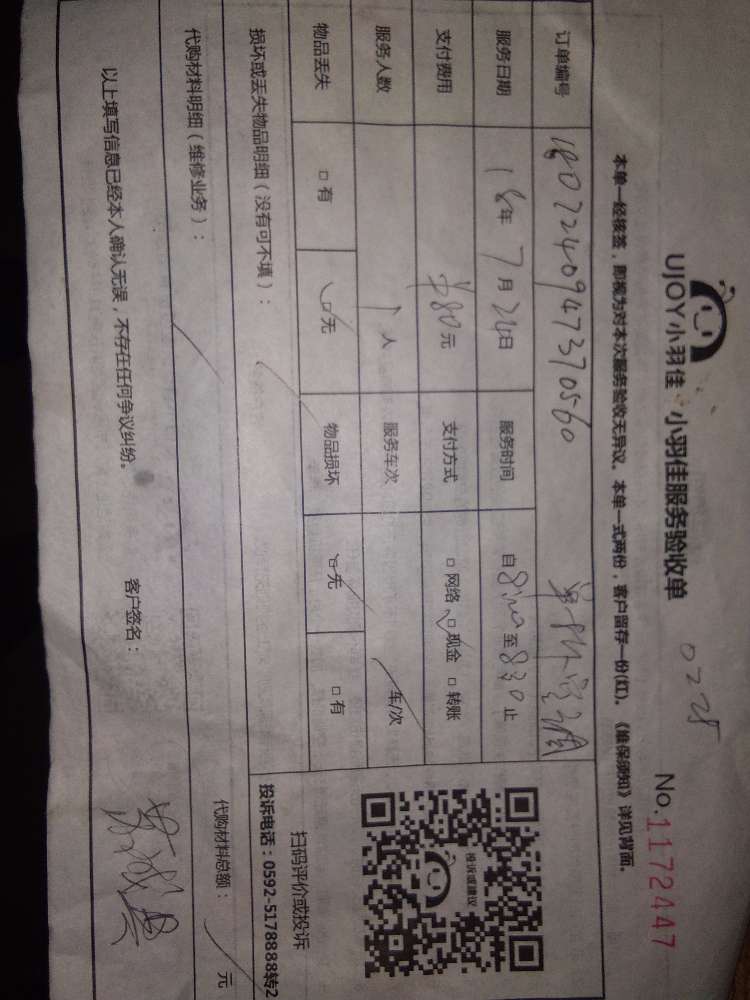 UJOY小羽佳 小羽佳服务验收单
0228
No.1172447
本单一经核签，即视为对本次服务验收无异议。本单一式两份，客户留存一份(红)。《维保须知》详见背面。
订单编号 1807240947370560
服务日期 18年 7月 24日 服务时间 自 至 8:30 止
支付费用 ¥80元 支付方式 □网络 ☑现金 □转账
服务人数 1人 服务车次 / 车/次
物品丢失 □有 ☑无 物品损坏 ☑无 □有
损坏或丢失物品明细（没有可不填）： /
代购材料明细（维修业务）： / 代购材料总额： / 元
以上填写信息已经本人确认无误，不存在任何争议纠纷。 客户签名：
投诉或建议
扫码评价或投诉
投诉电话：0592-5178888转2